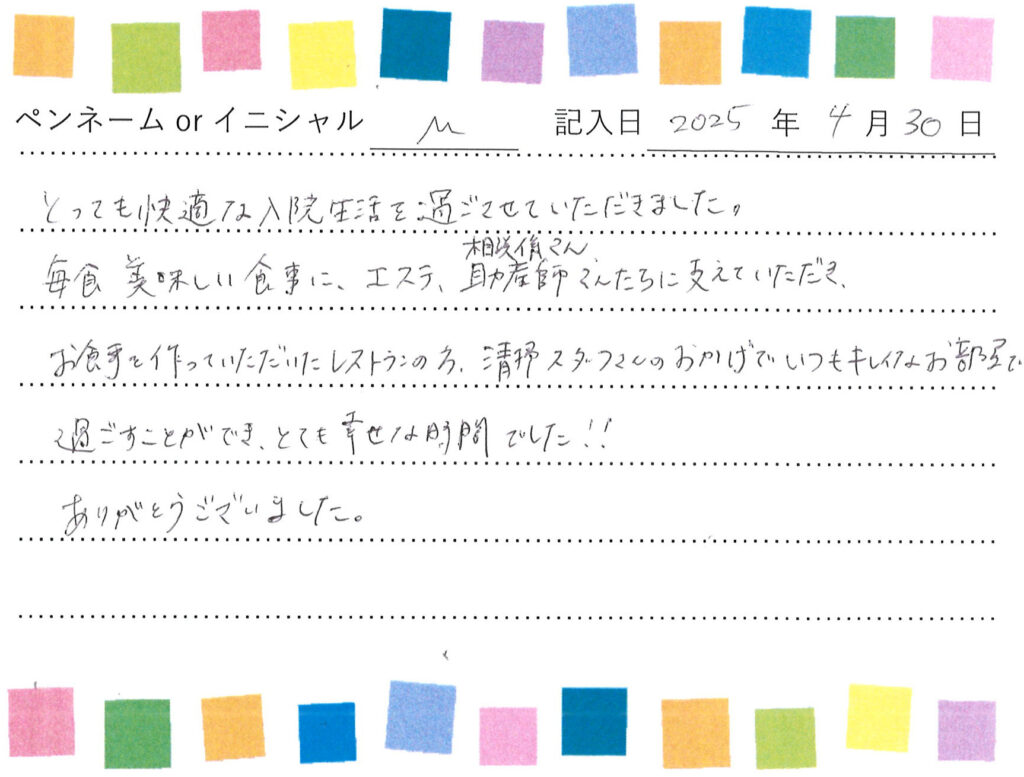 ペンネーム or イニシャル M 記入日 2025 年 4 月 30 日
とっても快適な入院生活を過ごさせていただきました。
相談係さん
毎食 美味しい食事に、エステ、助産師さんたちに支えていただき、
お食事を作っていただいたレストランの方、清掃スタッフさんのおかげでいつもキレイなお部屋で
過ごすことができ、とても幸せな時間でした!!
ありがとうございました。